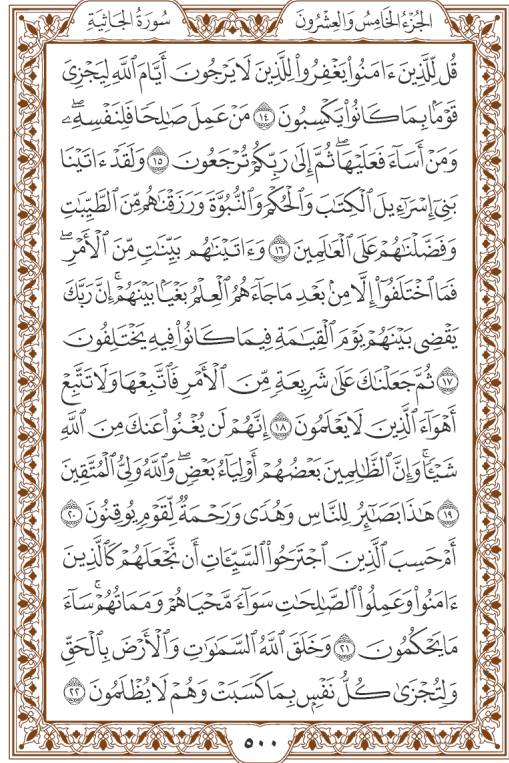 الجُزْءُ الخَامِسُ وَالعِشْرُونَ
سُورَةُ الجَاثِيَةِ
قُل لِّلَّذِينَ ءَامَنُوا۟ يَغْفِرُوا۟ لِلَّذِينَ لَا يَرْجُونَ أَيَّامَ ٱللَّهِ لِيَجْزِىَ
قَوْمًۢا بِمَا كَانُوا۟ يَكْسِبُونَ ١٤ مَنْ عَمِلَ صَٰلِحًا فَلِنَفْسِهِۦۖ
وَمَنْ أَسَآءَ فَعَلَيْهَاۖ ثُمَّ إِلَىٰ رَبِّكُمْ تُرْجَعُونَ ١٥ وَلَقَدْ ءَاتَيْنَا
بَنِىٓ إِسْرَٰٓءِيلَ ٱلْكِتَٰبَ وَٱلْحُكْمَ وَٱلنُّبُوَّةَ وَرَزَقْنَٰهُم مِّنَ ٱلطَّيِّبَٰتِ
وَفَضَّلْنَٰهُمْ عَلَى ٱلْعَٰلَمِينَ ١٦ وَءَاتَيْنَٰهُم بَيِّنَٰتٍ مِّنَ ٱلْأَمْرِۖ
فَمَا ٱخْتَلَفُوٓا۟ إِلَّا مِنۢ بَعْدِ مَا جَآءَهُمُ ٱلْعِلْمُ بَغْيًۢا بَيْنَهُمْۚ إِنَّ رَبَّكَ
يَقْضِى بَيْنَهُمْ يَوْمَ ٱلْقِيَٰمَةِ فِيمَا كَانُوا۟ فِيهِ يَخْتَلِفُونَ
١٧ ثُمَّ جَعَلْنَٰكَ عَلَىٰ شَرِيعَةٍ مِّنَ ٱلْأَمْرِ فَٱتَّبِعْهَا وَلَا تَتَّبِعْ
أَهْوَآءَ ٱلَّذِينَ لَا يَعْلَمُونَ ١٨ إِنَّهُمْ لَن يُغْنُوا۟ عَنكَ مِنَ ٱللَّهِ
شَيْـًٔاۚ وَإِنَّ ٱلظَّٰلِمِينَ بَعْضُهُمْ أَوْلِيَآءُ بَعْضٍۖ وَٱللَّهُ وَلِىُّ ٱلْمُتَّقِينَ
١٩ هَٰذَا بَصَٰٓئِرُ لِلنَّاسِ وَهُدًى وَرَحْمَةٌ لِّقَوْمٍ يُوقِنُونَ ٢٠
أَمْ حَسِبَ ٱلَّذِينَ ٱجْتَرَحُوا۟ ٱلسَّيِّـَٔاتِ أَن نَّجْعَلَهُمْ كَٱلَّذِينَ
ءَامَنُوا۟ وَعَمِلُوا۟ ٱلصَّٰلِحَٰتِ سَوَآءً مَّحْيَاهُمْ وَمَمَاتُهُمْۚ سَآءَ
مَا يَحْكُمُونَ ٢١ وَخَلَقَ ٱللَّهُ ٱلسَّمَٰوَٰتِ وَٱلْأَرْضَ بِٱلْحَقِّ
وَلِتُجْزَىٰ كُلُّ نَفْسٍۭ بِمَا كَسَبَتْ وَهُمْ لَا يُظْلَمُونَ ٢٢
٥٠٠